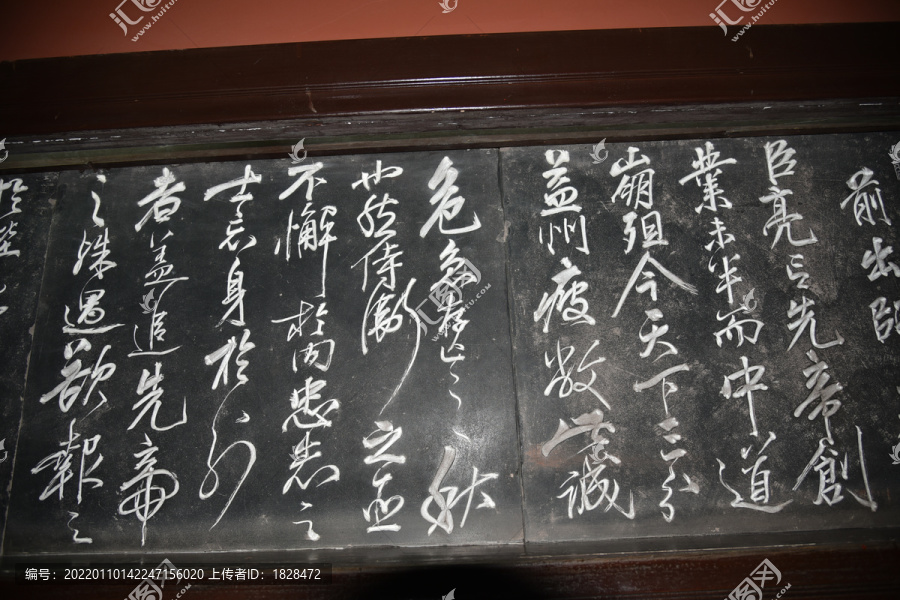 前出師
臣亮言先帝創
業未半而中道
崩殂今天下三分
益州疲敝此誠
危急存亡之秋
也然侍衛之臣
不懈於內忠志之
士忘身於外
者蓋追先帝
之殊遇欲報之
於陛
编号：20220110142247156020 上传者ID：1828472